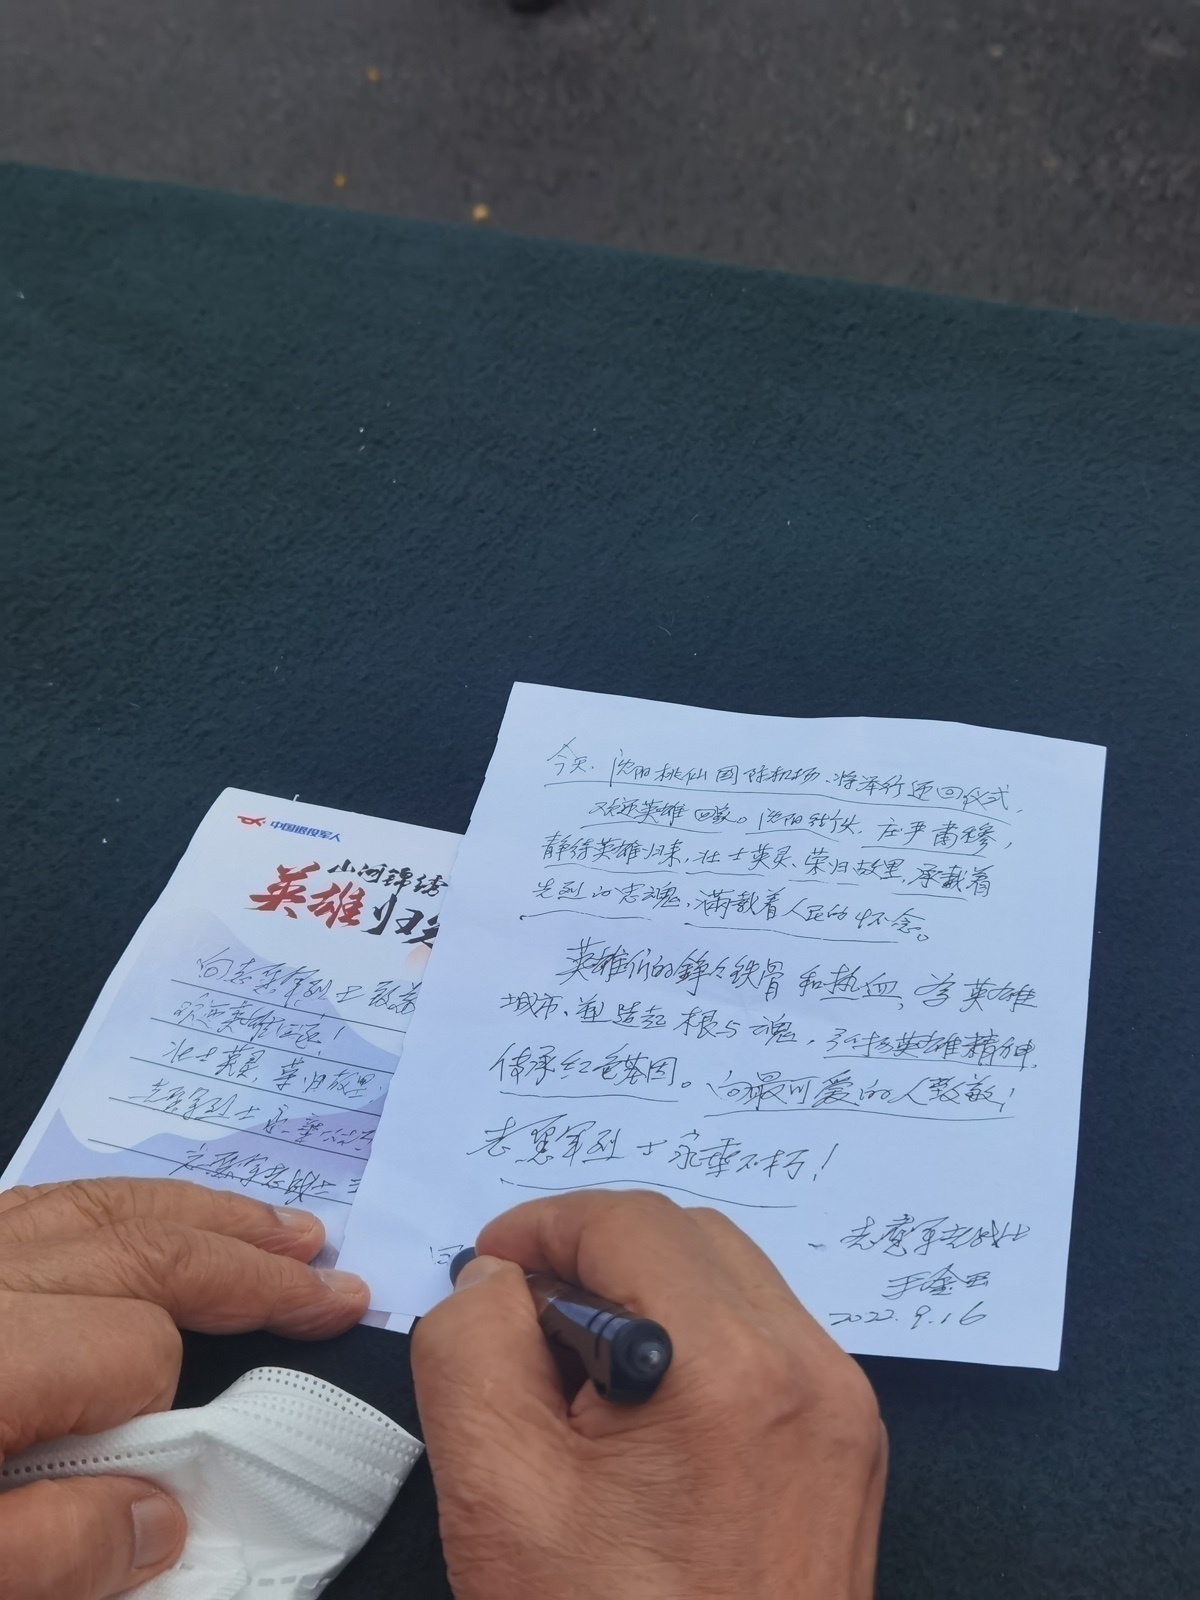 中国退役军人
山河锦绣
英雄归
向志愿军烈士致敬
欢迎英雄回家！
壮士英灵，荣归故里
志愿军烈士永垂
今天，沈阳桃仙国际机场，将举行迎回仪式，
欢迎英雄回家。沈阳 庄严肃穆，
静待英雄归来，壮士英灵、荣归故里，承载着
先烈的忠魂，满载着人民的怀念。
英雄们的铮々铁骨和热血，为英雄
城市、塑造起根与魂，弘扬英雄精神，
传承红色基因。向最可爱的人致敬！
志愿军烈士永垂不朽！
志愿军老战士
2022.9.16